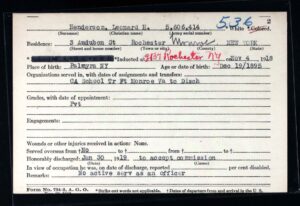 536
2
Henderson, Leonard H. 5,606,414
(Surname) (Christian name) (Army serial number)
Residence: 3 Audubon St Rochester Monroe NEW YORK
(Street and house number) (Town or city) (County) (State)
Inducted at Rochester NY Nov 4, 1918
Place of birth: Palmyra NY Age or date of birth: Dec 19/1895
Organizations served in, with dates of assignments and transfers:
CA School Tr Ft Monroe Va to Disch
Grades, with date of appointment:
Pvt
Wounds or other injuries received in action: None
Served overseas from No to , from to
Honorably discharged: Jun 30 1919 to accept commission
In view of occupation he was, on date of discharge, reported per cent disabled.
Remarks: No active serv as an officer
Form No. 724-8, A. G. O. *Strike out words not applicable. †Dates of departure from and arrival in the U. S.